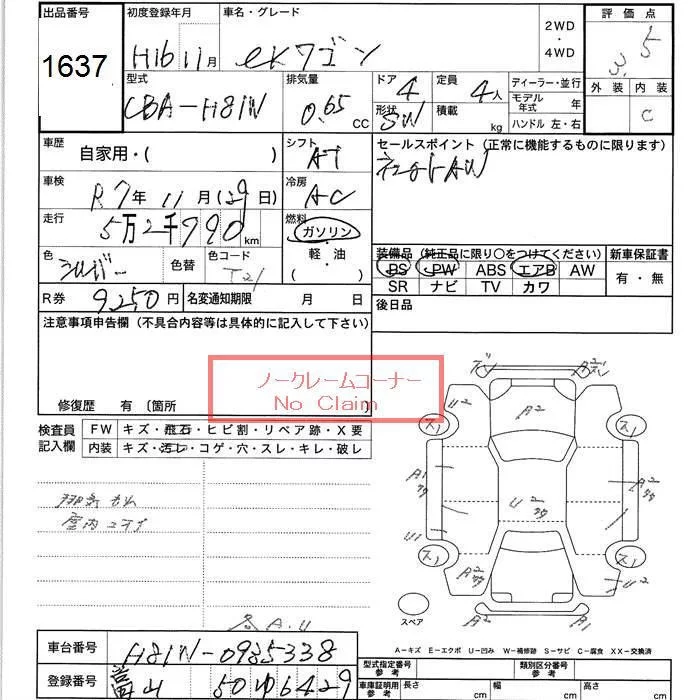 出品番号 初度登録年月 車名・グレード 2WD・4WD 評価点
1637 H16 11月 eKワゴン 3.5
型式 排気量 ドア 定員 ディーラー・並行 外装 内装
CBA-H81W 0.65 CC 4 4人 モデル年式 年 C
形状 SW 積載 kg ハンドル 左・右
車歴 自家用・( ) シフト AT セールスポイント(正常に機能するものに限ります)
車検 R7年 11月(29日) 冷房 AC
走行 5万2千990km 燃料 ガソリン
軽・油
( )
色 シルバー 色替 色コード T21
装備品(純正品に限り○をつけてください) 新車保証書
PS PW ABS エアB AW 有・無
SR ナビ TV カワ
R券 9250円 名変通知期限 月 日 後日品
注意事項申告欄(不具合内容等は具体的に記入して下さい)
ノークレームコーナー
No Claim
修復歴 有 〔箇所
検査員記入欄 FW キズ・飛石・ヒビ割・リペア跡・X要
内装 キズ・汚レ・コゲ・穴・スレ・キレ・破レ
A2
U2
スペア
各A.U
A-キズ E-エクボ U-凹み W-補修跡 S-サビ C-腐食 XX-交換済
車台番号 H81W-0985338 型式指定番号 参考 類別区分番号 参考
登録番号 富山 50ゆ6429 車庫証明用 参考 長さ cm 幅 cm 高さ cm